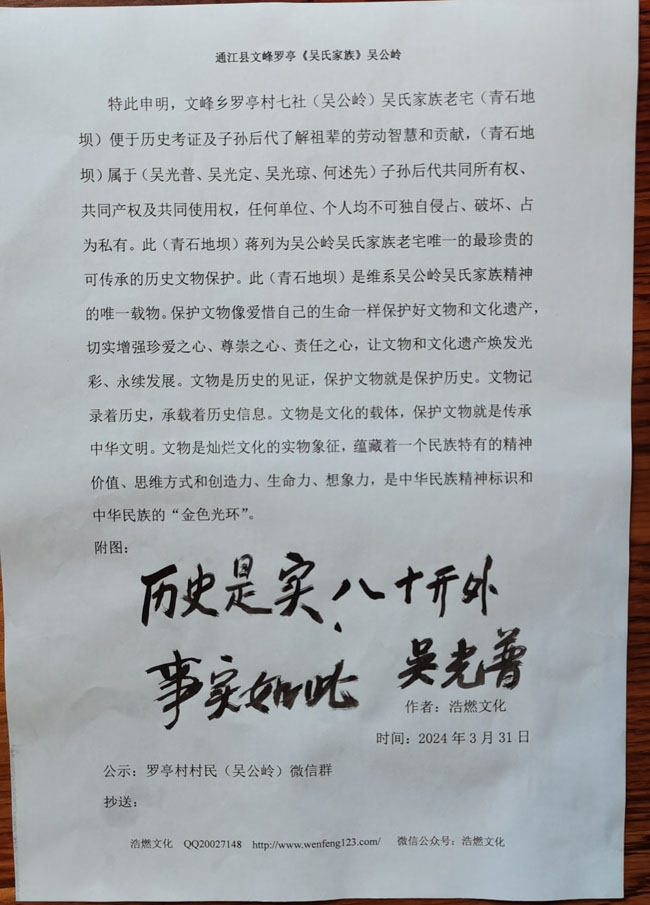 通江县文峰罗亭《吴氏家族》吴公岭
特此申明，文峰乡罗亭村七社（吴公岭）吴氏家族老宅（青石地
坝）便于历史考证及子孙后代了解祖辈的劳动智慧和贡献，（青石地
坝）属于（吴光普、吴光定、吴光琼、何述先）子孙后代共同所有权、
共同产权及共同使用权，任何单位、个人均不可独自侵占、破坏、占
为私有。此（青石地坝）蒋列为吴公岭吴氏家族老宅唯一的最珍贵的
可传承的历史文物保护。此（青石地坝）是维系吴公岭吴氏家族精神
的唯一载物。保护文物像爱惜自己的生命一样保护好文物和文化遗产，
切实增强珍爱之心、尊崇之心、责任之心，让文物和文化遗产焕发光
彩、永续发展。文物是历史的见证，保护文物就是保护历史。文物记
录着历史，承载着历史信息。文物是文化的载体，保护文物就是传承
中华文明。文物是灿烂文化的实物象征，蕴藏着一个民族特有的精神
价值、思维方式和创造力、生命力、想象力，是中华民族精神标识和
中华民族的“金色光环”。
附图：
历史是实、八十开外
事实如此 吴光普
作者：浩燃文化
时间：2024 年 3 月 31 日
公示：罗亭村村民（吴公岭）微信群
抄送：
浩燃文化 QQ20027148 http://www.wenfeng123.com/ 微信公众号：浩燃文化